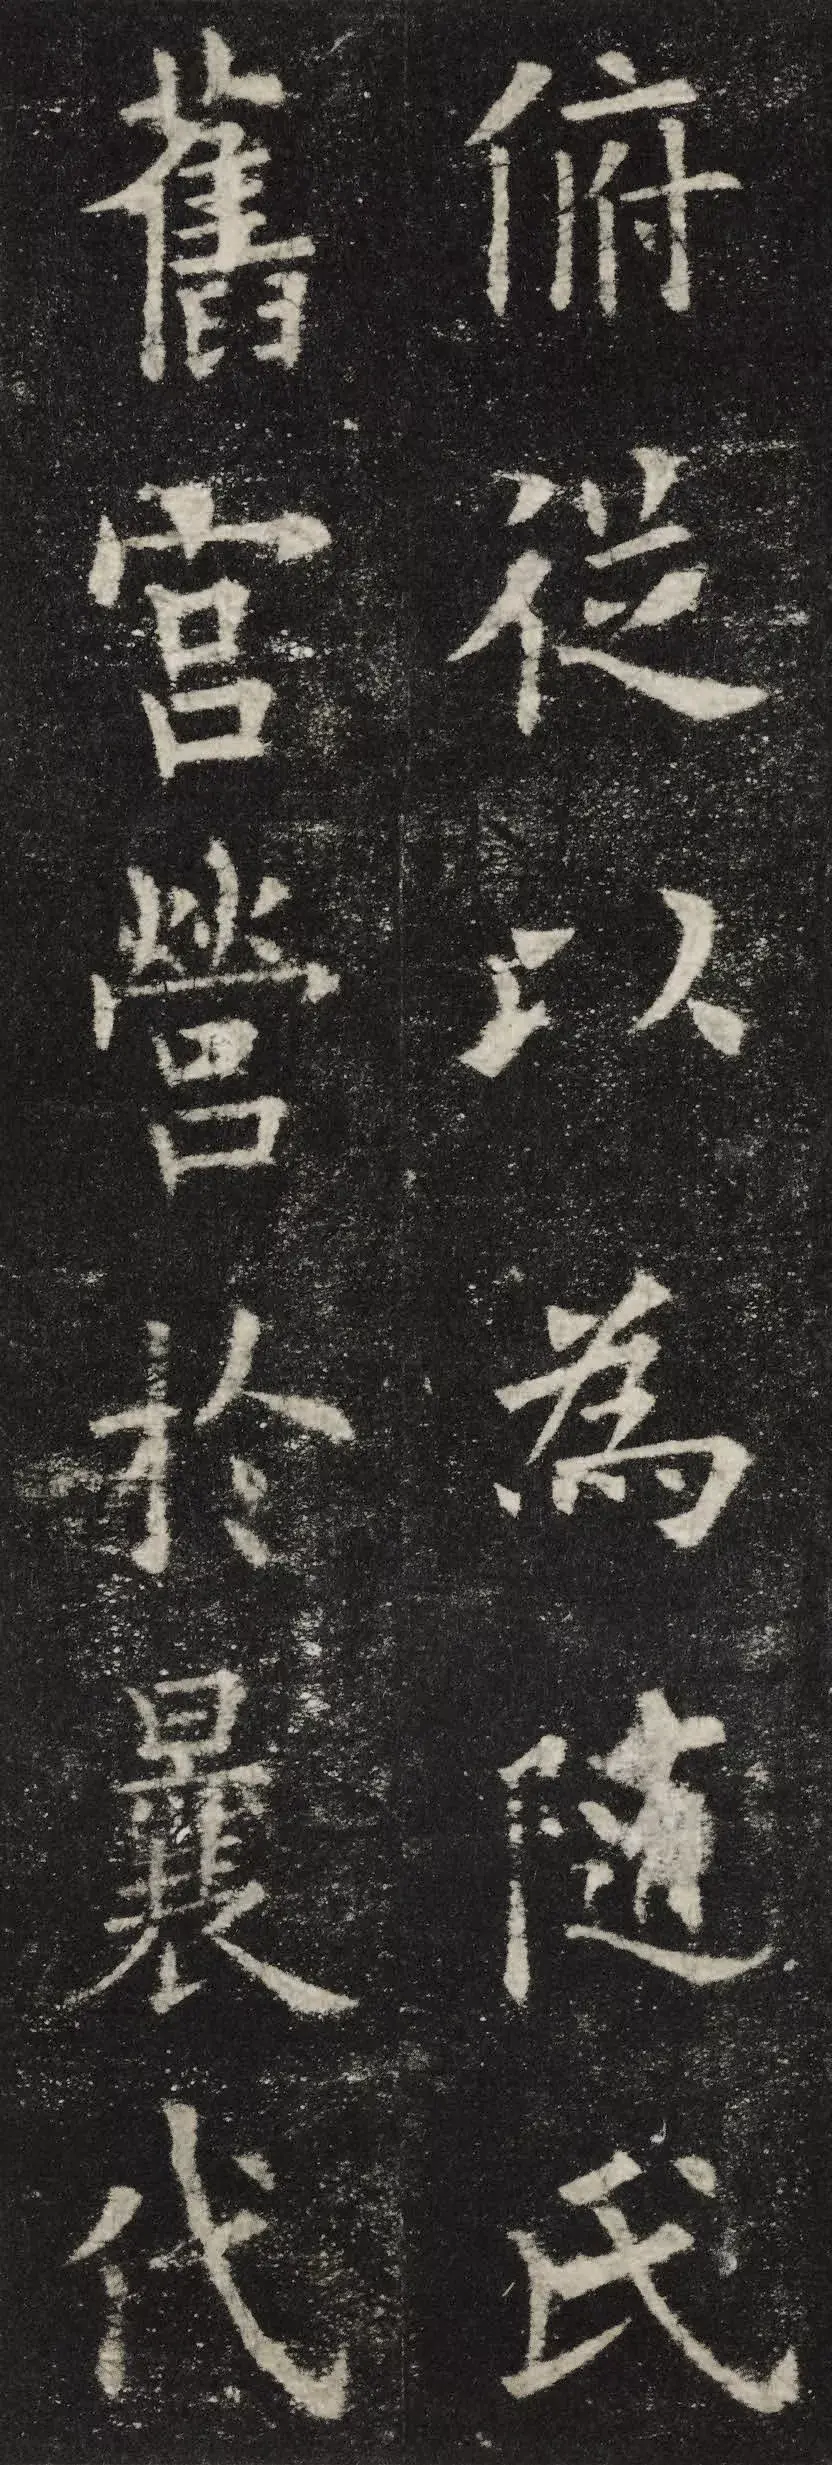 俯從以為隨氏
舊宮營於曩代